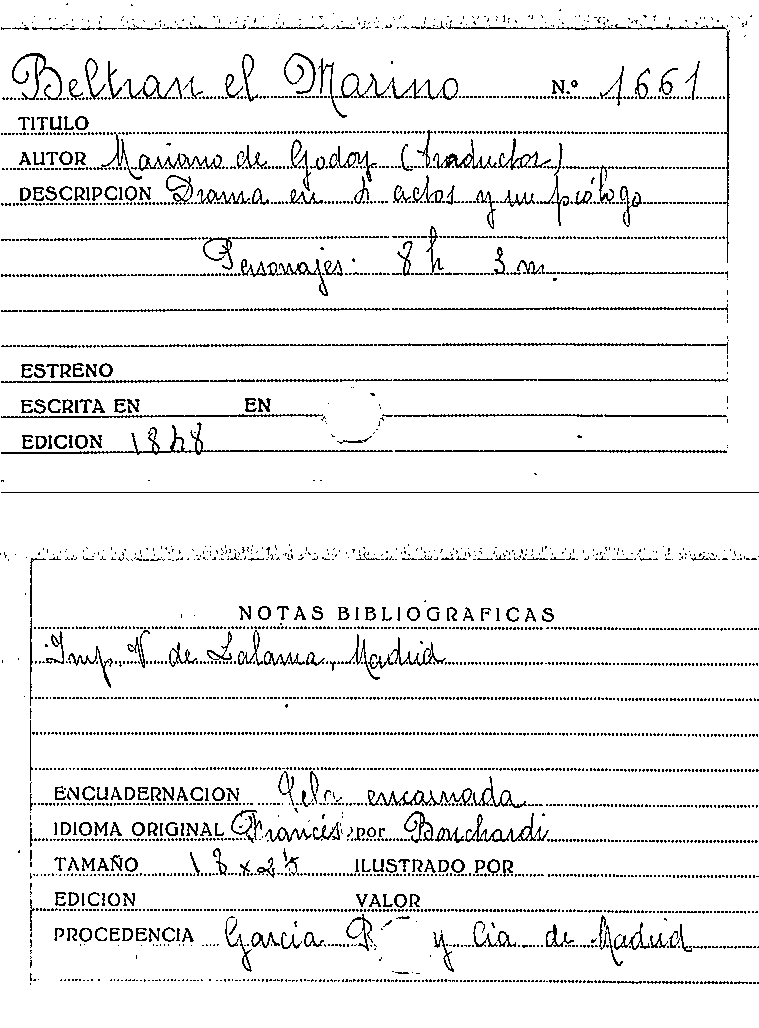 Beltran el Marino N.º 1661
TITULO
AUTOR Mariano de Godoy (traductor)
DESCRIPCION Drama en 4 actos y un prólogo
Personajes: 8 h 3 m.
ESTRENO
ESCRITA EN EN
EDICION 1848
NOTAS BIBLIOGRAFICAS
Imp. V de Lalama, Madrid
ENCUADERNACION Tela encarnada
IDIOMA ORIGINAL Francés, por Bouchardi
TAMAÑO 18 x 25 ILUSTRADO POR
EDICION VALOR
PROCEDENCIA García y Cia de Madrid